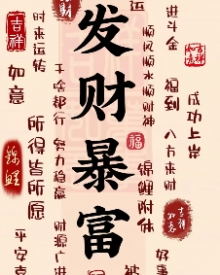 发财暴富
吉祥
如意
锦鲤
平安喜
时来运转
所得皆所愿
干啥都行
努力稳赢
财源广进
顺风顺水顺财神
福
锦鲤附体
进斗金
福到
八方来财
好事
成功上岸
吉祥如意